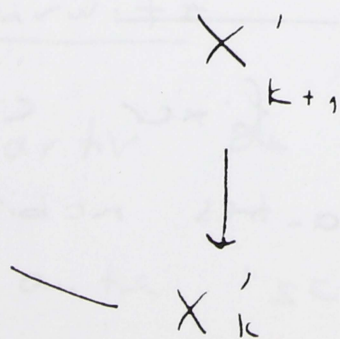 X'
k+1
↓
X'k